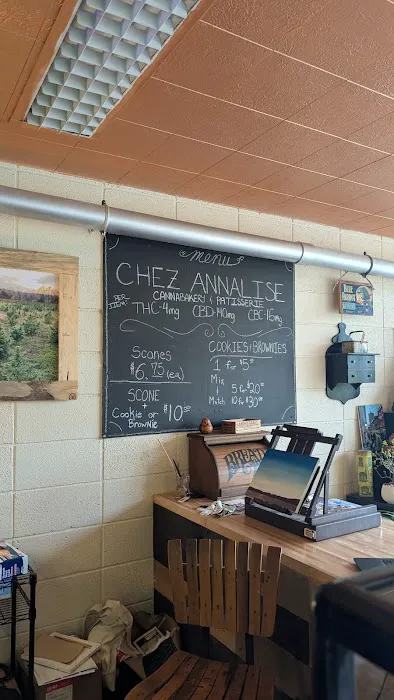 menu
CHEZ ANNALISE
CANNABAKERY & PATISSERIE
PER
THC-4mg CBD-140mg CBC-16mg
Scones
$6.75 (ea)
SCONE
+
Cookie or $10
Brownie
COOKIES & BROWNIES
1 for $5
Mix
&
Match
5 for $20
10 for $30